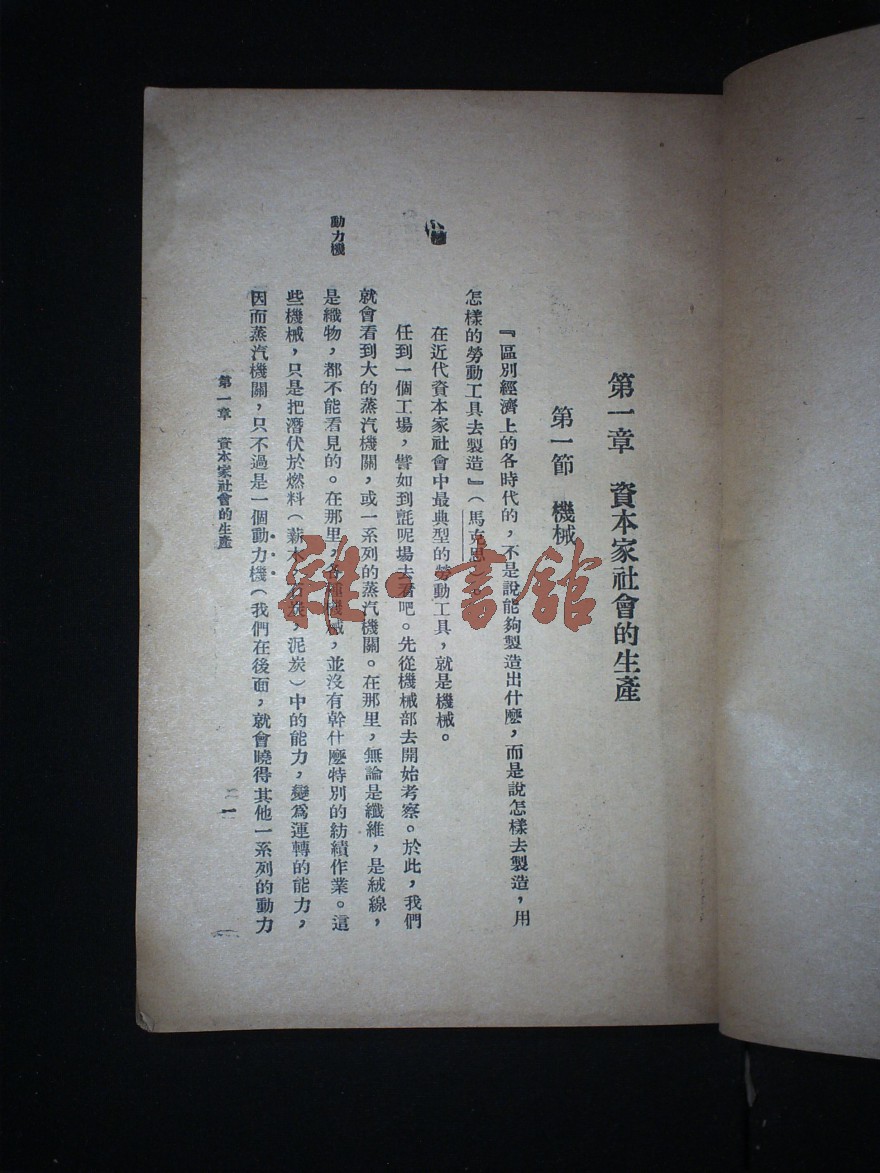 第一章　資本家社會的生產
第一節　機械
『區別經濟上的各時代的，不是說能夠製造出什麼，而是說怎樣去製造，用
怎樣的勞動工具去製造』（馬克思
在近代資本家社會中最典型的勞動工具，就是機械。
任到一個工場，譬如到氈呢場去看吧。先從機械部去開始考察。於此，我們
就會看到大的蒸汽機關，或一系列的蒸汽機關。在那里，無論是纖維，是絨線，
動力機
是織物，都不能看見的。在那里，各種機械，並沒有幹什麼特別的紡績作業。這
些機械，只是把潛伏於燃料（薪木，石炭，泥炭）中的能力，變爲運轉的能力，
因而蒸汽機關，只不過是一個動力機（我們在後面，就會曉得其他一系列的動力
第一章　資本家社會的生產
一
雜·書館